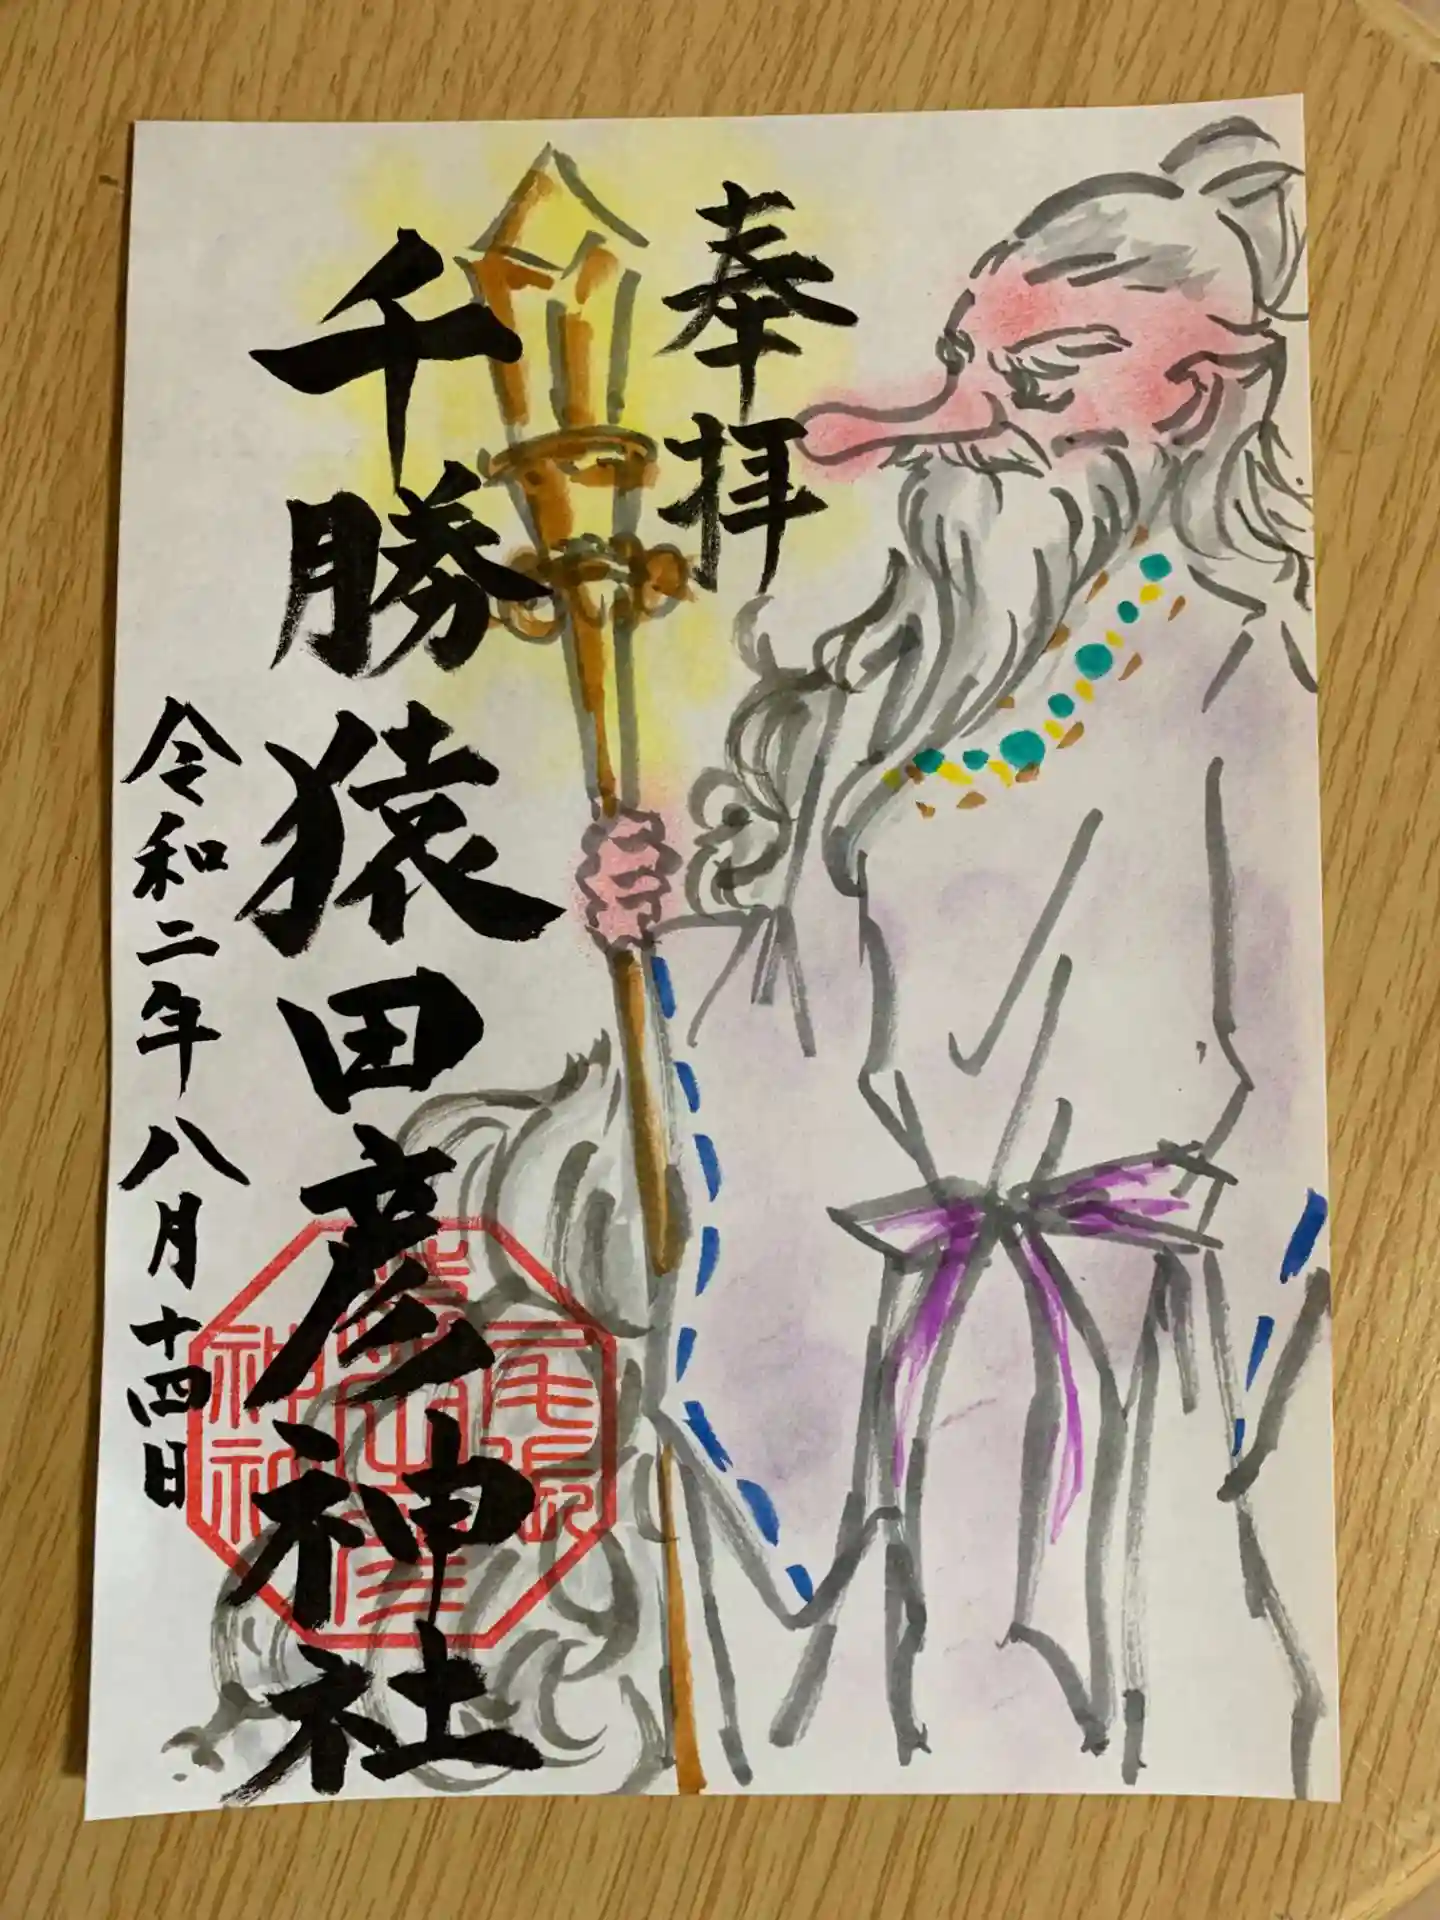 奉拝
千勝猿田彦神社
令和二年八月十四日
尾張
神社